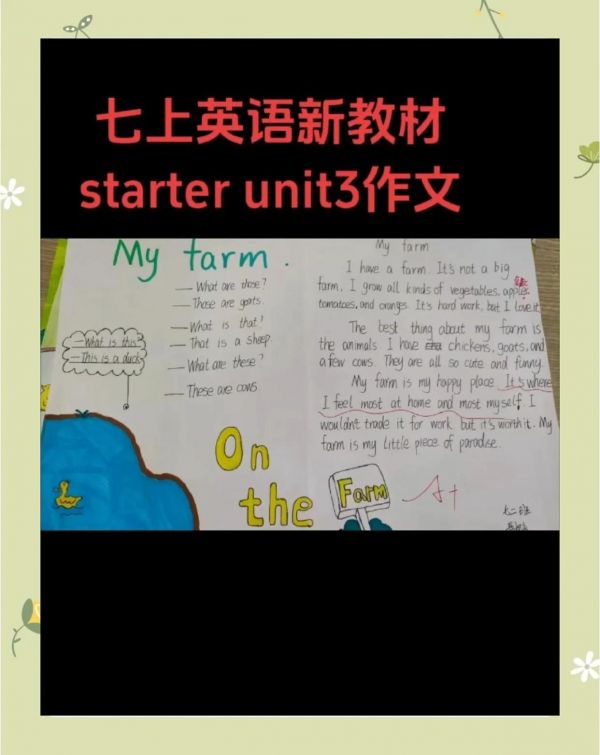 七上英语新教材
starter unit3作文
My farm.
— What are those?
— Those are goats.
— What is that?
— That is a sheep.
— What are these?
— These are cows.
—What is this?
—This is a duck
On
the
Farm
My farm
I have a farm. It's not a big
farm. I grow all kinds of vegetables,
tomatoes, and oranges. It's hard work, but I love it.
The best thing about my farm is
the animals I have chickens, goats, and
a few cows. They are all so cute and funny.
My farm is my happy place. It's where
I feel most at home and most myself. I
wouldn't trade it for work but it's worth it. My
farm is my little piece of paradise.
A+
七二班